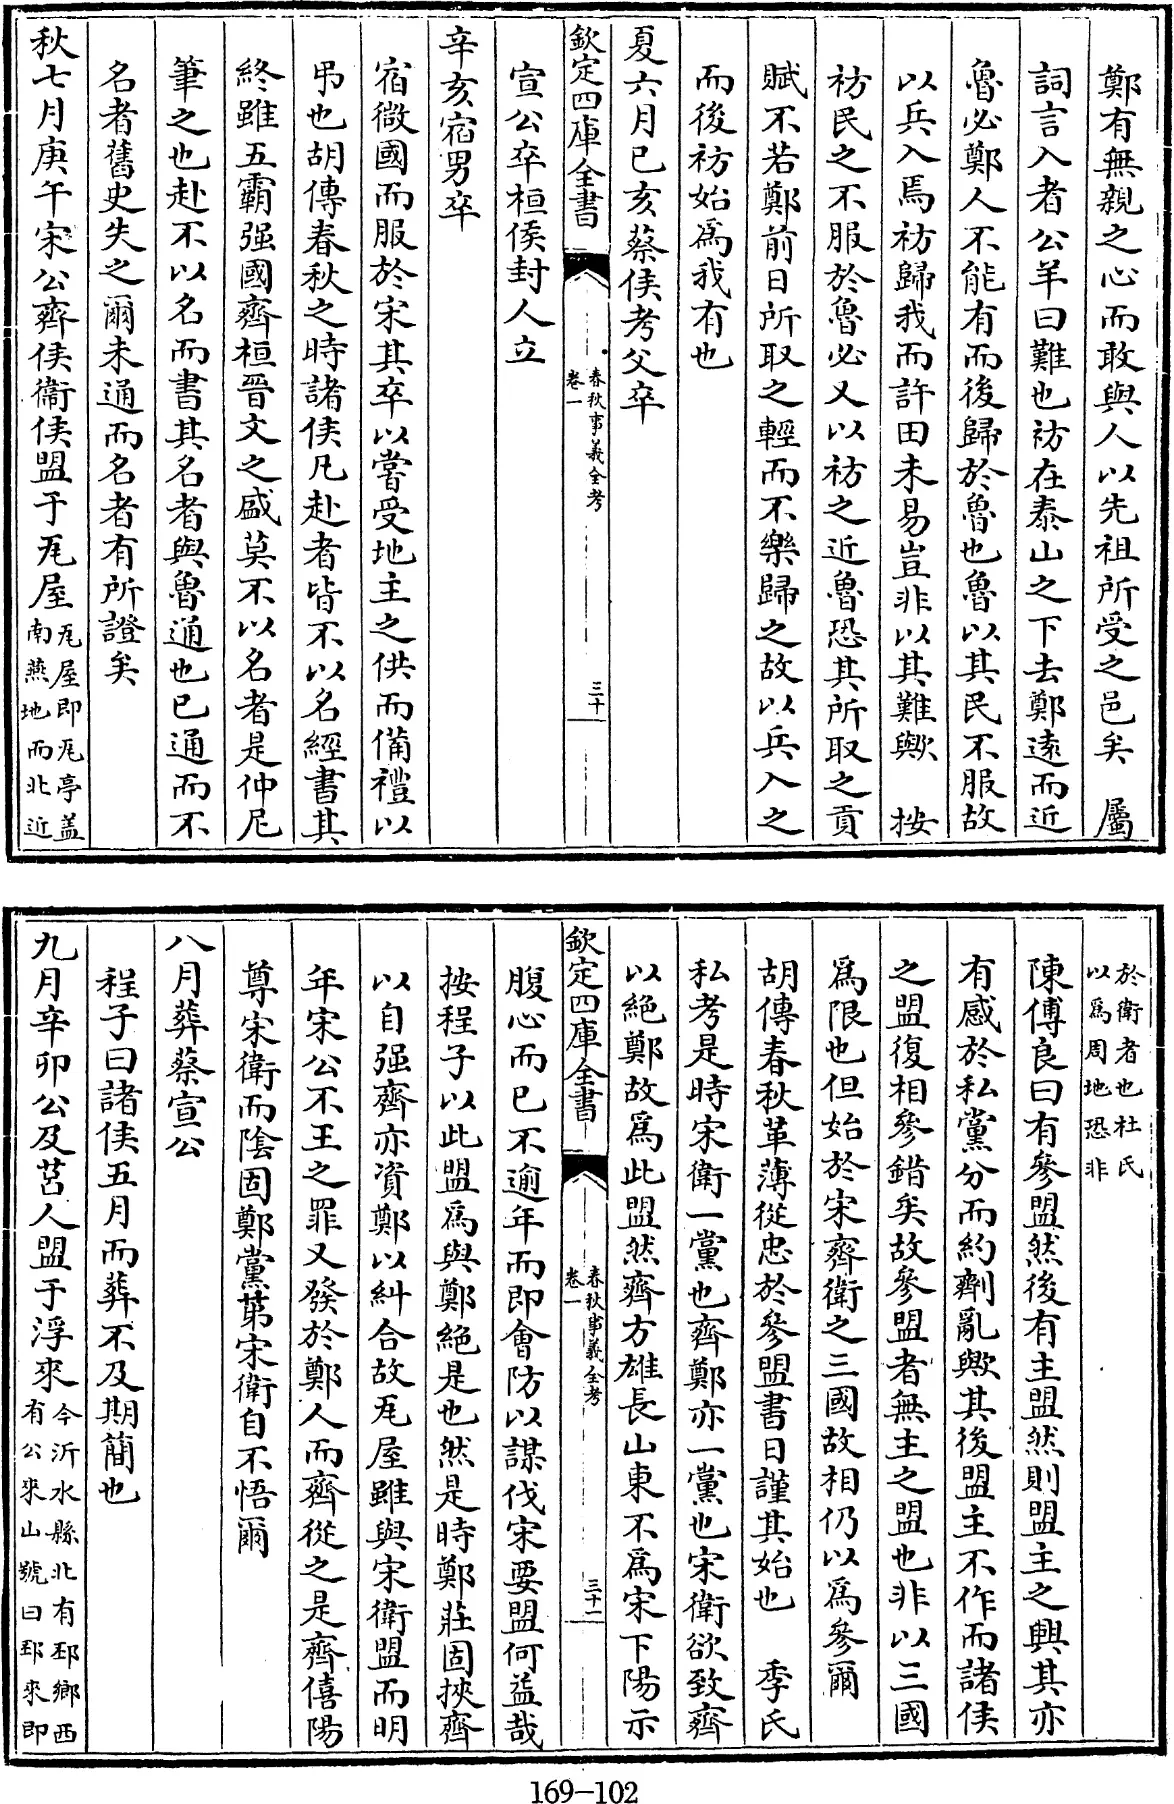 鄭有無親之心而敢與人以先祖所受之邑矣　屬
詞言入者公羊曰難也祊在泰山之下去鄭遠而近
魯必鄭人不能有而後歸於魯也魯以其民不服故
以兵入焉祊歸我而許田未易豈非以其難歟　按
祊民之不服於魯必又以祊之近魯恐其所取之貢
賦不若鄭前日所取之輕而不樂歸之故以兵入之
而後祊始為我有也
夏六月己亥蔡侯考父卒
欽定四庫全書
春秋事義全考
卷一
三十
宣公卒桓侯封人立
辛亥宿男卒
宿微國而服於宋其卒以嘗受地主之供而備禮以
弔也胡傳春秋之時諸侯凡赴者皆不以名經書其
終雖五霸强國齊桓晉文之盛莫不以名者是仲尼
筆之也赴不以名而書其名者與魯通也已通而不
名者舊史失之爾未通而名者有所證矣
秋七月庚午宋公齊侯衞侯盟于瓦屋
瓦屋即瓦亭盖
南燕地而北近
於衛者也杜氏
以為周地恐非
陳傅良曰有參盟然後有主盟然則盟主之興其亦
有感於私黨分而約劑亂歟其後盟主不作而諸侯
之盟復相參錯矣故參盟者無主之盟也非以三國
為限也但始於宋齊衛之三國故相仍以為參爾
胡傳春秋革薄從忠於參盟書日謹其始也　季氏
私考是時宋衛一黨也齊鄭亦一黨也宋衛欲致齊
以絶鄭故為此盟然齊方雄長山東不為宋下陽示
欽定四庫全書
春秋事義全考
卷一
三十一
腹心而已不逾年而即會防以謀伐宋要盟何益哉
按程子以此盟為與鄭絶是也然是時鄭莊固挾齊
以自强齊亦資鄭以糾合故瓦屋雖與宋衛盟而明
年宋公不王之罪又發於鄭人而齊從之是齊僖陽
尊宋衛而陰固鄭黨第宋衛自不悟爾
八月葬蔡宣公
程子曰諸侯五月而葬不及期簡也
九月辛卯公及莒人盟于浮來
今沂水縣北有邳鄉西
有公來山號曰邳來即
169-102